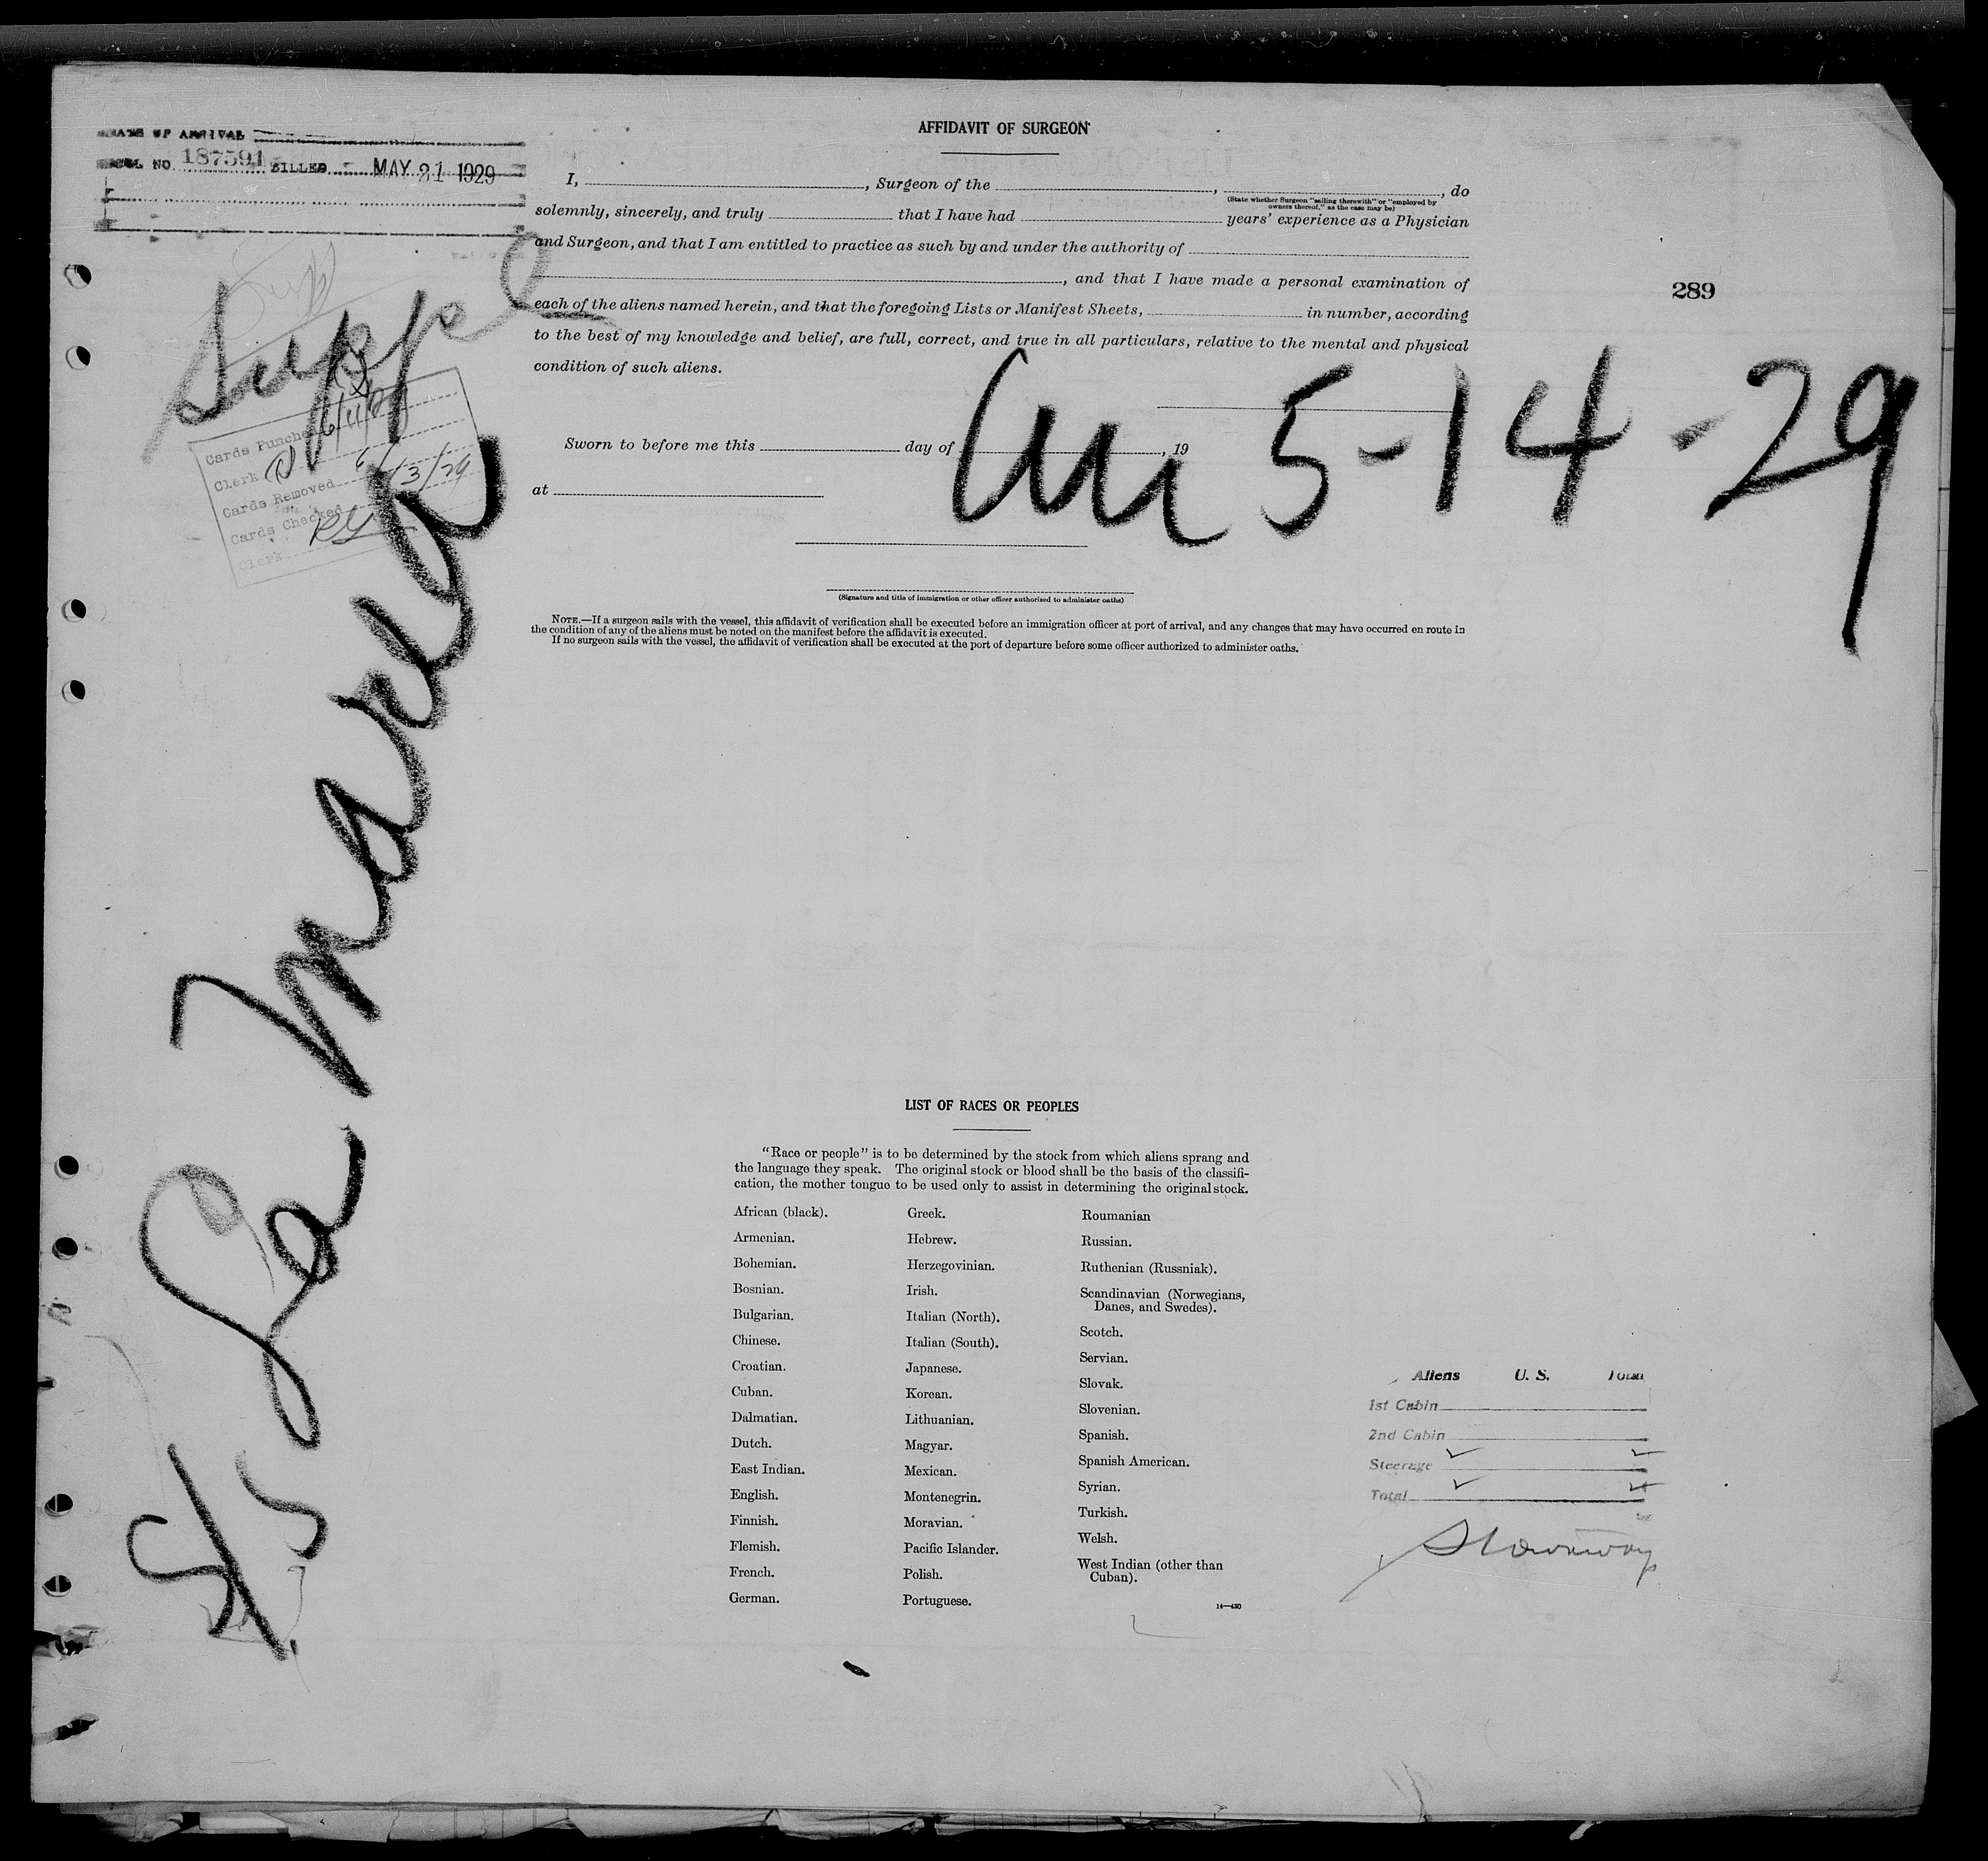 DATE OF ARRIVAL
NO. 187591 BILLED MAY 21 1929
AFFIDAVIT OF SURGEON
I, , Surgeon of the , , do
(State whether Surgeon "sailing therewith" or "employed by
owners thereof," as the case may be)
solemnly, sincerely, and truly that I have had years' experience as a Physician
and Surgeon, and that I am entitled to practice as such by and under the authority of
, and that I have made a personal examination of
each of the aliens named herein, and that the foregoing Lists or Manifest Sheets, in number, according
to the best of my knowledge and belief, are full, correct, and true in all particulars, relative to the mental and physical
condition of such aliens.
289
Suppl
Cards Punched 6/11/29
Clerk
Cards Removed 6/13/29
Cards Checked
Clerk
5-14-29
Sworn to before me this day of , 19
at
(Signature and title of immigration or other officer authorized to administer oaths)
NOTE.—If a surgeon sails with the vessel, this affidavit of verification shall be executed before an immigration officer at port of arrival, and any changes that may have occurred en route in
the condition of any of the aliens must be noted on the manifest before the affidavit is executed.
If no surgeon sails with the vessel, the affidavit of verification shall be executed at the port of departure before some officer authorized to administer oaths.
S/S La Marea
LIST OF RACES OR PEOPLES
"Race or people" is to be determined by the stock from which aliens sprang and
the language they speak. The original stock or blood shall be the basis of the classifi-
cation, the mother tongue to be used only to assist in determining the original stock.
African (black).
Armenian.
Bohemian.
Bosnian.
Bulgarian.
Chinese.
Croatian.
Cuban.
Dalmatian.
Dutch.
East Indian.
English.
Finnish.
Flemish.
French.
German.
Greek.
Hebrew.
Herzegovinian.
Irish.
Italian (North).
Italian (South).
Japanese.
Korean.
Lithuanian.
Magyar.
Mexican.
Montenegrin.
Moravian.
Pacific Islander.
Polish.
Portuguese.
Roumanian
Russian.
Ruthenian (Russniak).
Scandinavian (Norwegians,
Danes, and Swedes).
Scotch.
Servian.
Slovak.
Slovenian.
Spanish.
Spanish American.
Syrian.
Turkish.
Welsh.
West Indian (other than
Cuban).
14—430
Aliens U. S. Total
1st Cabin
2nd Cabin
Steerage ✓ ✓
Total ✓ ✓
Stowaway